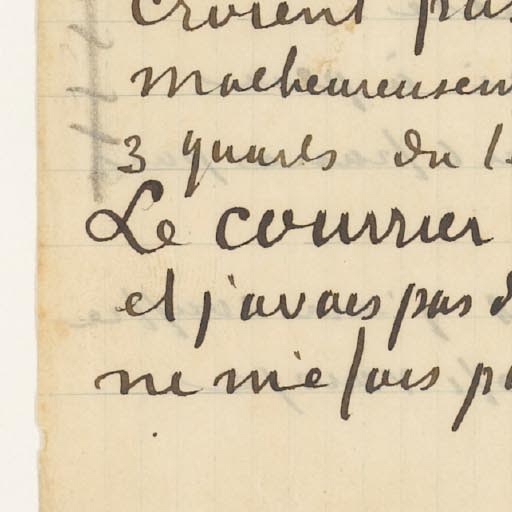 croient pas
malheureusem
3 quarts du l
Le courrier
et j'avais pas d
ne m'e fais pa